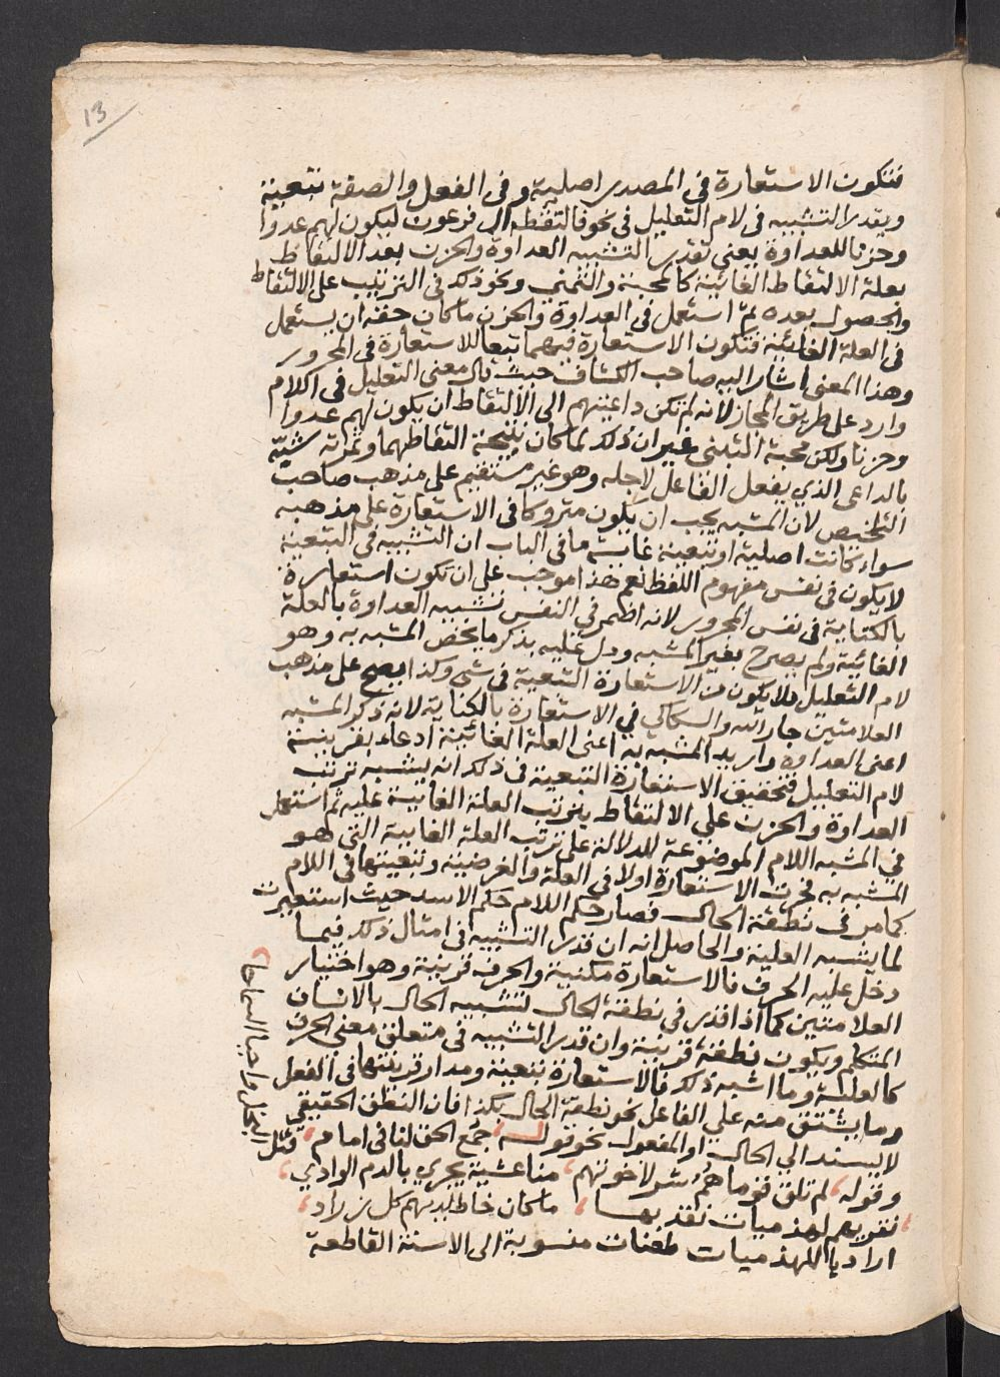 13
فتكون الاستعارة في المصدر اصلية وفي الفعل والصفة تبعية
ويقدر التشبيه في لام التعليل في نحو فالتقطه ال فرعون ليكون لهم عدوا
وحزنا للعداوة يعني تقدر التشبيه العداوة والحزن بعد الالتقاط
بعلة الالتقاط الغائية كالمحبة والتبني ونحو ذلك في الترتيب على الالتقاط
والحصول بعده ثم استعمل في العداوة والحزن ما كان حقه ان يستعمل
في العلة الغائية فتكون الاستعارة فيهما تبعا للاستعارة في المجرور
وهذا المعنى اشار اليه صاحب الكشاف حيث قال معنى التعليل في الكلام
وارد على طريق المجاز لانه لم تكن داعيتهم الى الالتقاط ان يكون لهم عدوا
وحزنا ولكن محبة التبني غير ان ذلك لما كان نتيجة التقاطهما وثمرته شبه
بالداعي الذي يفعل الفاعل لاجله وهو غير مستقيم على مذهب صاحب
التلخيص لان المشبه يجب ان يكون متروكا في الاستعارة على مذهبه
سواء كانت اصلية او تبعية غاية ما في الباب ان التشبيه في التبعية
لا يكون في نفس مفهوم اللفظ نعم هذا موجب على ان تكون استعارة
بالكناية في نفس المجرور لانه اضمر في النفس تشبيه العداوة بالعلة
الغائية ولم يصرح بغير المشبه ودل عليه بذكر ما يخص المشبه به وهو
لام التعليل فلا يكون من الاستعارة التبعية في شي وكذا يصح على مذهب
العلامتين جار الله والسكاكي في الاستعارة بالكناية لانه ذكر المشبه
اعني العداوة واريد المشبه به اعني العلة الغائية ادعاء بقرينة
لام التعليل فتحقيق الاستعارة التبعية في ذلك انه يشبه ترتب
العداوة والحزن على الالتقاط بترتب العلة الغائية عليه ثم استعمل
في المشبه اللام الموضوعة للدلالة على ترتب العلة الغايية التي هو
المشبه به فجرت الاستعارة اولا في العلة والغرضية وتبعيتها في اللام
كما مر في نطقت الحال فصار حكم اللام حكم الاسد حيث استعيرت
لما يشبه العلية والحاصل انه ان قدر التشبيه في امثال ذلك فيما
دخل عليه الحرف فالاستعارة مكنية والحرف قرينة وهو اختيار
العلامتين كما اذا قدر في نطقت الحال تشبيه الحال بالانسان
المتكلم ويكون نطقت قرينة وان قدر التشبيه في متعلق معنى الحرف
كالعلية وما اشبه ذلك فالاستعارة تبعية ومدار قرينتها في الفعل
وما يشتق منه على الفاعل نحو نطقت الحال بكذا فان النطق الحقيقي
لا يسند الى الحال او المفعول نحو قوله جمع الحق لنا في امام قتل
البخل واحيا السماحا
وقوله لم تلق قوما هم شر لاخوتهم منا عشية يجري بالدم الوادي
نقريهم لهذميات نقد بها ما كان خاط عليهم كل زراد
اراد باللهذميات طعنات منسوبة الى الاسنة القاطعة